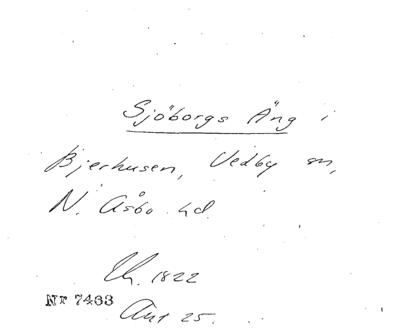 Sjöborgs Äng i
Bjerhusen, Vedby sn,
N. Åsbo hd.
Ch. 1822
Nr 7433
Aug 25.